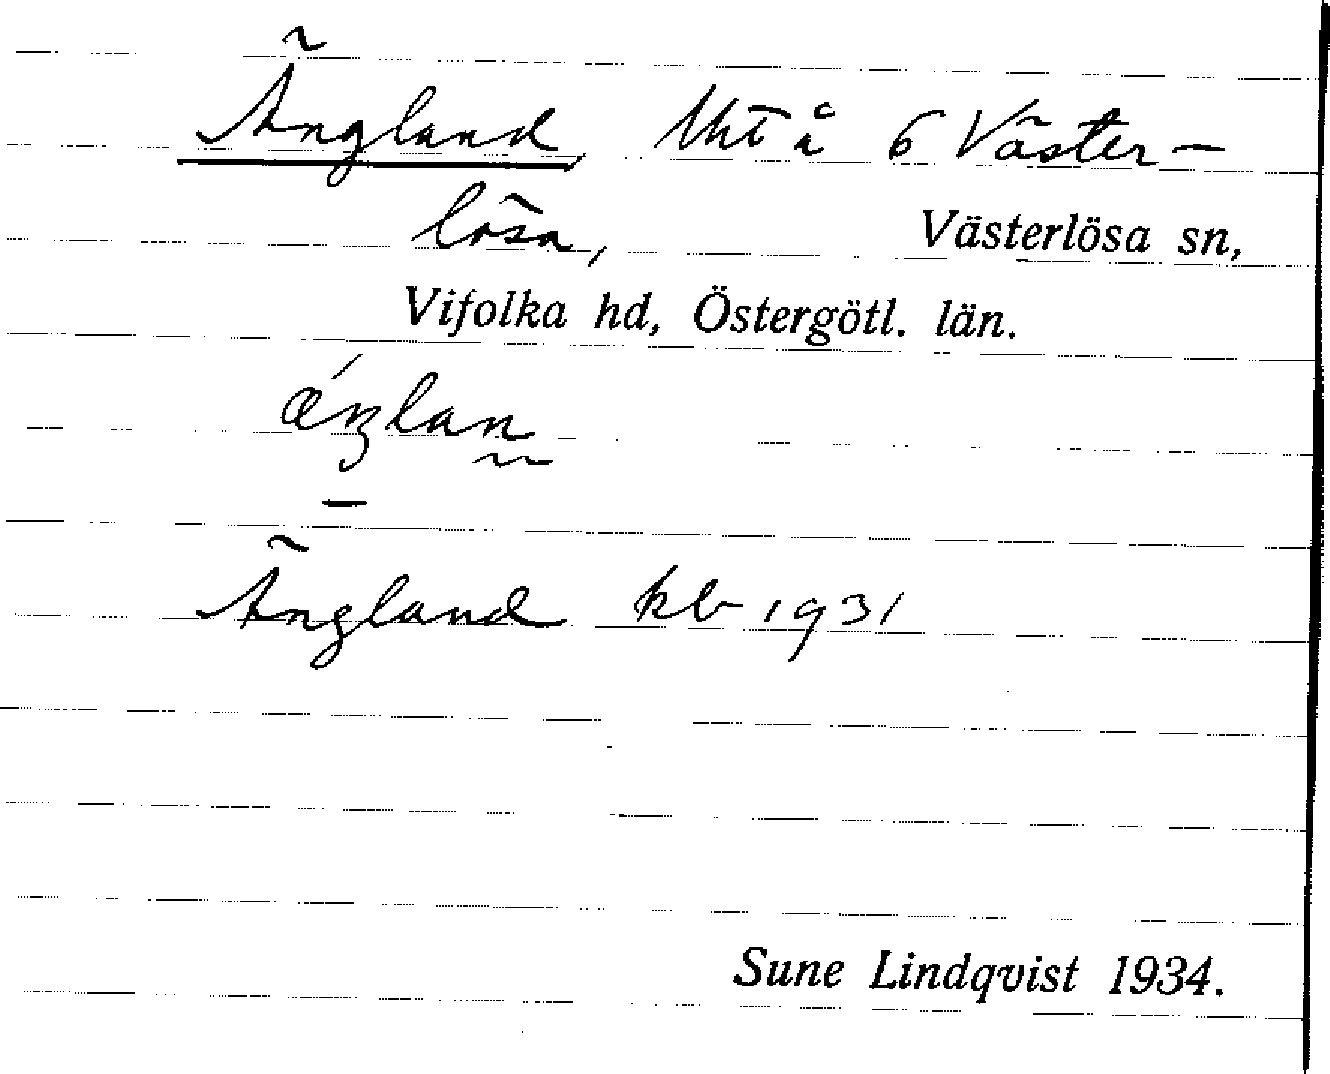 Ängland, lht å 6 Väster-
lösa, Västerlösa sn,
Vifolka hd, Östergötl. län.
ǽŋlan
—
Ängland kb 1931
Sune Lindqvist 1934.